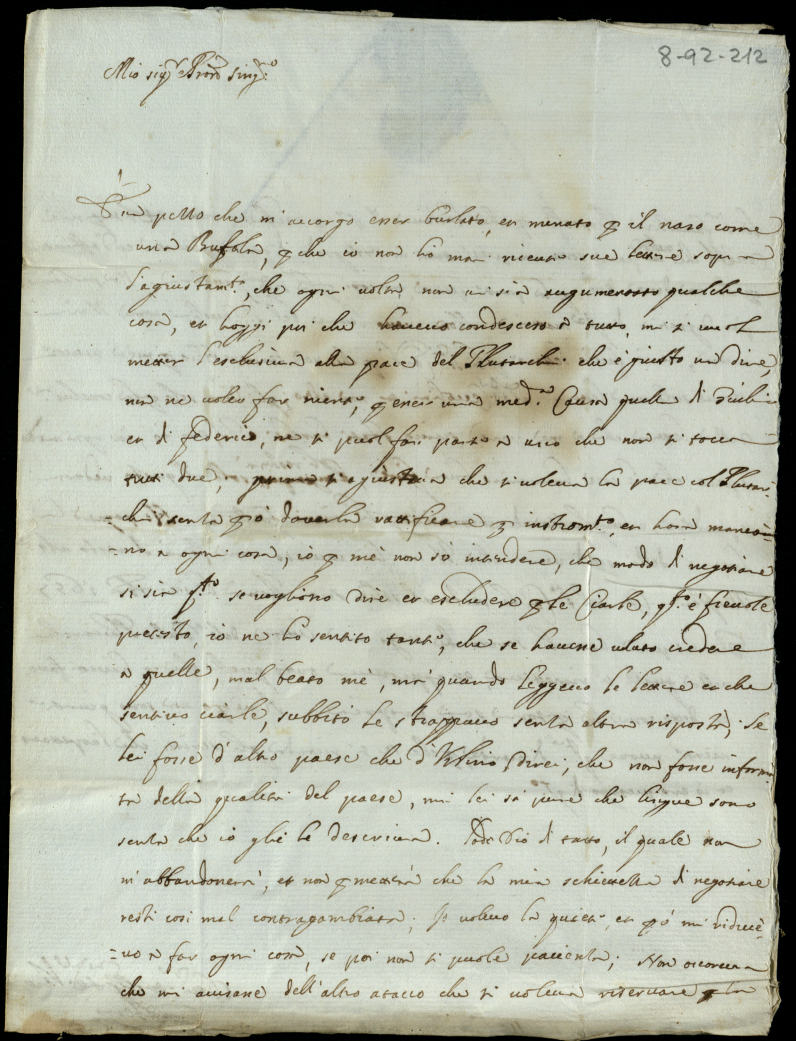 8-92-212
Mio sig.r e Pron sing.o
petto che m'accorgo esser burlato, et menato p il naso come
una Bufala, p che io non ho mai riceuto sue lettere sopra
l'agiustam.to, che ogni volta non vi sia augumentato qualche
cosa, et hoggi poi che haveuo condesceso a tutto, mi si vuol
metter l'esclusiua alla pace del Plutarchi che è giusto un dire,
non ne voler far niente, p esser una med.a Causa quella di
et di federico, ne si puol far patto a uno che non si tocca
tutti due, prima si agiustaua che si voleua la pace col Plutar-
=chi senza p.ò douerla ratificare p instrom.to, et hora mancò
=no a ogni cosa, io p mè non sò intendere, che modo di negotiare
si sia q.to se vogliono dire et escludere p le Ciarle, q.o è fieuole
pretesto, io ne ho sentito tante, che se hauesse uluto credere
a quelle, mal beato mè, ma quando leggeuo le lettere et che
sentiuo ciarle, subbito le strappauo senza altra risposta; Se
lei fosse d'altro paese che d'Urbino direi, che non fosse informa
ta della qualità del paese, mà lei sà pure che lingue sono
senza che io glie le descriua. Lode Dio di tutto, il quale non
m'abbandonerà, et non pmetterà che la mia schiettezza di negotiare
resti cosi mal contragambiata; Io voleuo la quiete, et p.ò mi riduce=
=uo a far ogni cosa, se poi non si puole pacienza; Non occorreua
che mi auisasse dell'altro atacco che si voleua riseruare p la